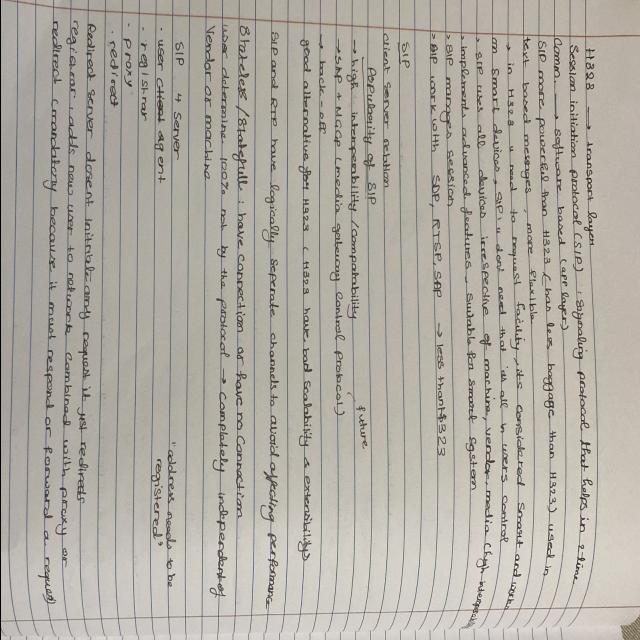 H323 → transport layer
Session initiation protocol (SIP) : signaling protocol that helps in r-time
Comm. → software based (app layer)
SIP more powerful than H323 (has less baggage than H323) used in
text based messages, more flexible
→ in H323 u need to request facility, its considered smart and works
on smart devices, SIP: u dont need that its all in users control
> SIP uses all devices irrespective of machine, vendor, media (high
> Implements advanced features - suitable for smart system
> SIP manages session
> SIP work with SDP, RTSP, SAP → less than H323
SIP
client server relation
Popularity of SIP
→ high interoperability / compatability
→ + MGCP (media gateway control protocol) future
→ back-off
good alternative for H323 (H323 have bad scalability & extensibility)
SIP and RTP have logically seperate channels to avoid affecting performance
Stateless / statefull : have connection or have no connection
user determine 100% not by the protocol → completely independent of
vendor or machine
SIP 4 server
· user agent
· registrar "address needs to be
registered"
· proxy
· redirect
Redirect server dosent initiate any request it just redirects
registrar : adds new user to network combined with proxy or
redirect (mandatory because it must respond or forward a request)